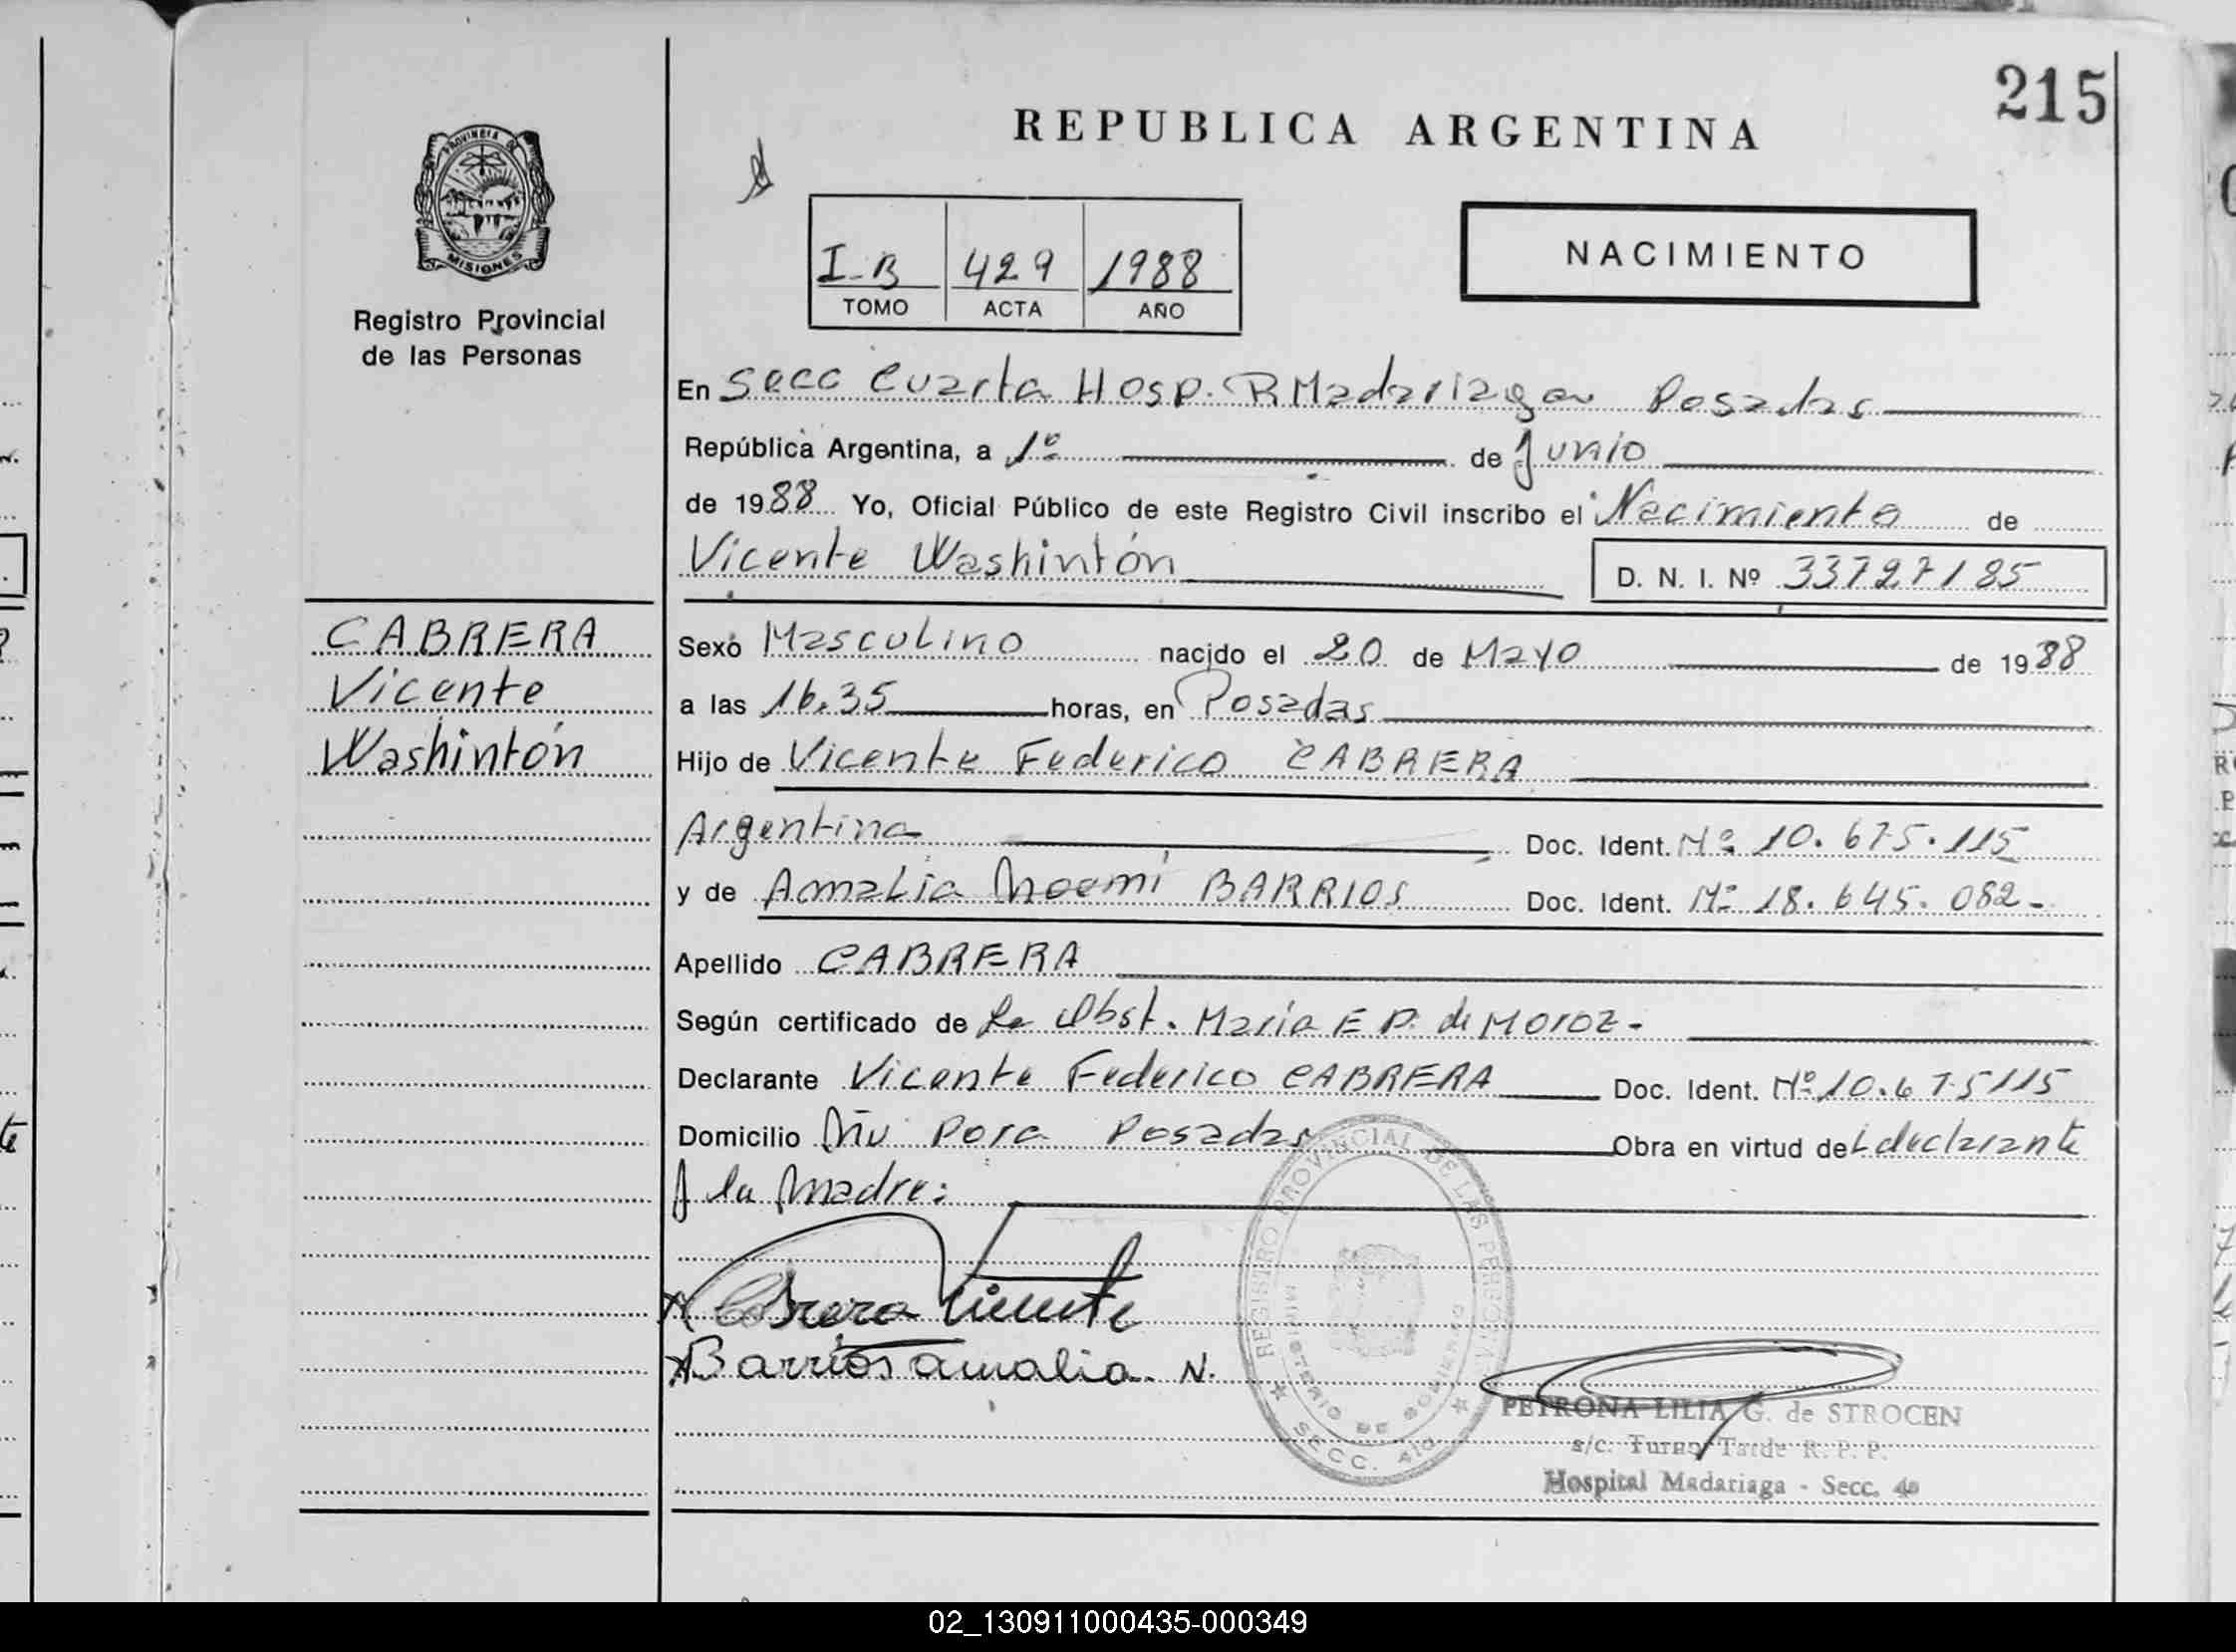 215
REPUBLICA ARGENTINA
PROVINCIA DE
MISIONES
Registro Provincial
de las Personas
I-B 429 1988
TOMO ACTA AÑO
NACIMIENTO
En Secc Cuarta Hosp. R Madariaga Posadas
República Argentina, a 1º de Junio
de 1988 Yo, Oficial Público de este Registro Civil inscribo el Nacimiento de
Vicente Washintón D. N. I. Nº 33727185
CABRERA
Vicente
Washintón
Sexo Masculino nacido el 20 de Mayo de 1988
a las 16.35 horas, en Posadas
Hijo de Vicente Federico CABRERA
Argentina Doc. Ident. Nº 10.675.115
y de Amalia Noemí BARRIOS Doc. Ident. Nº 18.645.082-
Apellido CABRERA
Según certificado de La Obst. María E P. de Moroz-
Declarante Vicente Federico CABRERA Doc. Ident. Nº 10.675115
Domicilio Posadas Obra en virtud del declarante
y la Madre:
Cabrera Vicente
Barrios Amalia N.
REGISTRO PROVINCIAL DE LAS PERSONAS
MINISTERIO DE GOBIERNO
SECC. 4ta
PETRONA LILIA G. de STROCEN
s/c. Turno Tarde R. P. P.
Hospital Madariaga - Secc. 4a
02_130911000435-000349